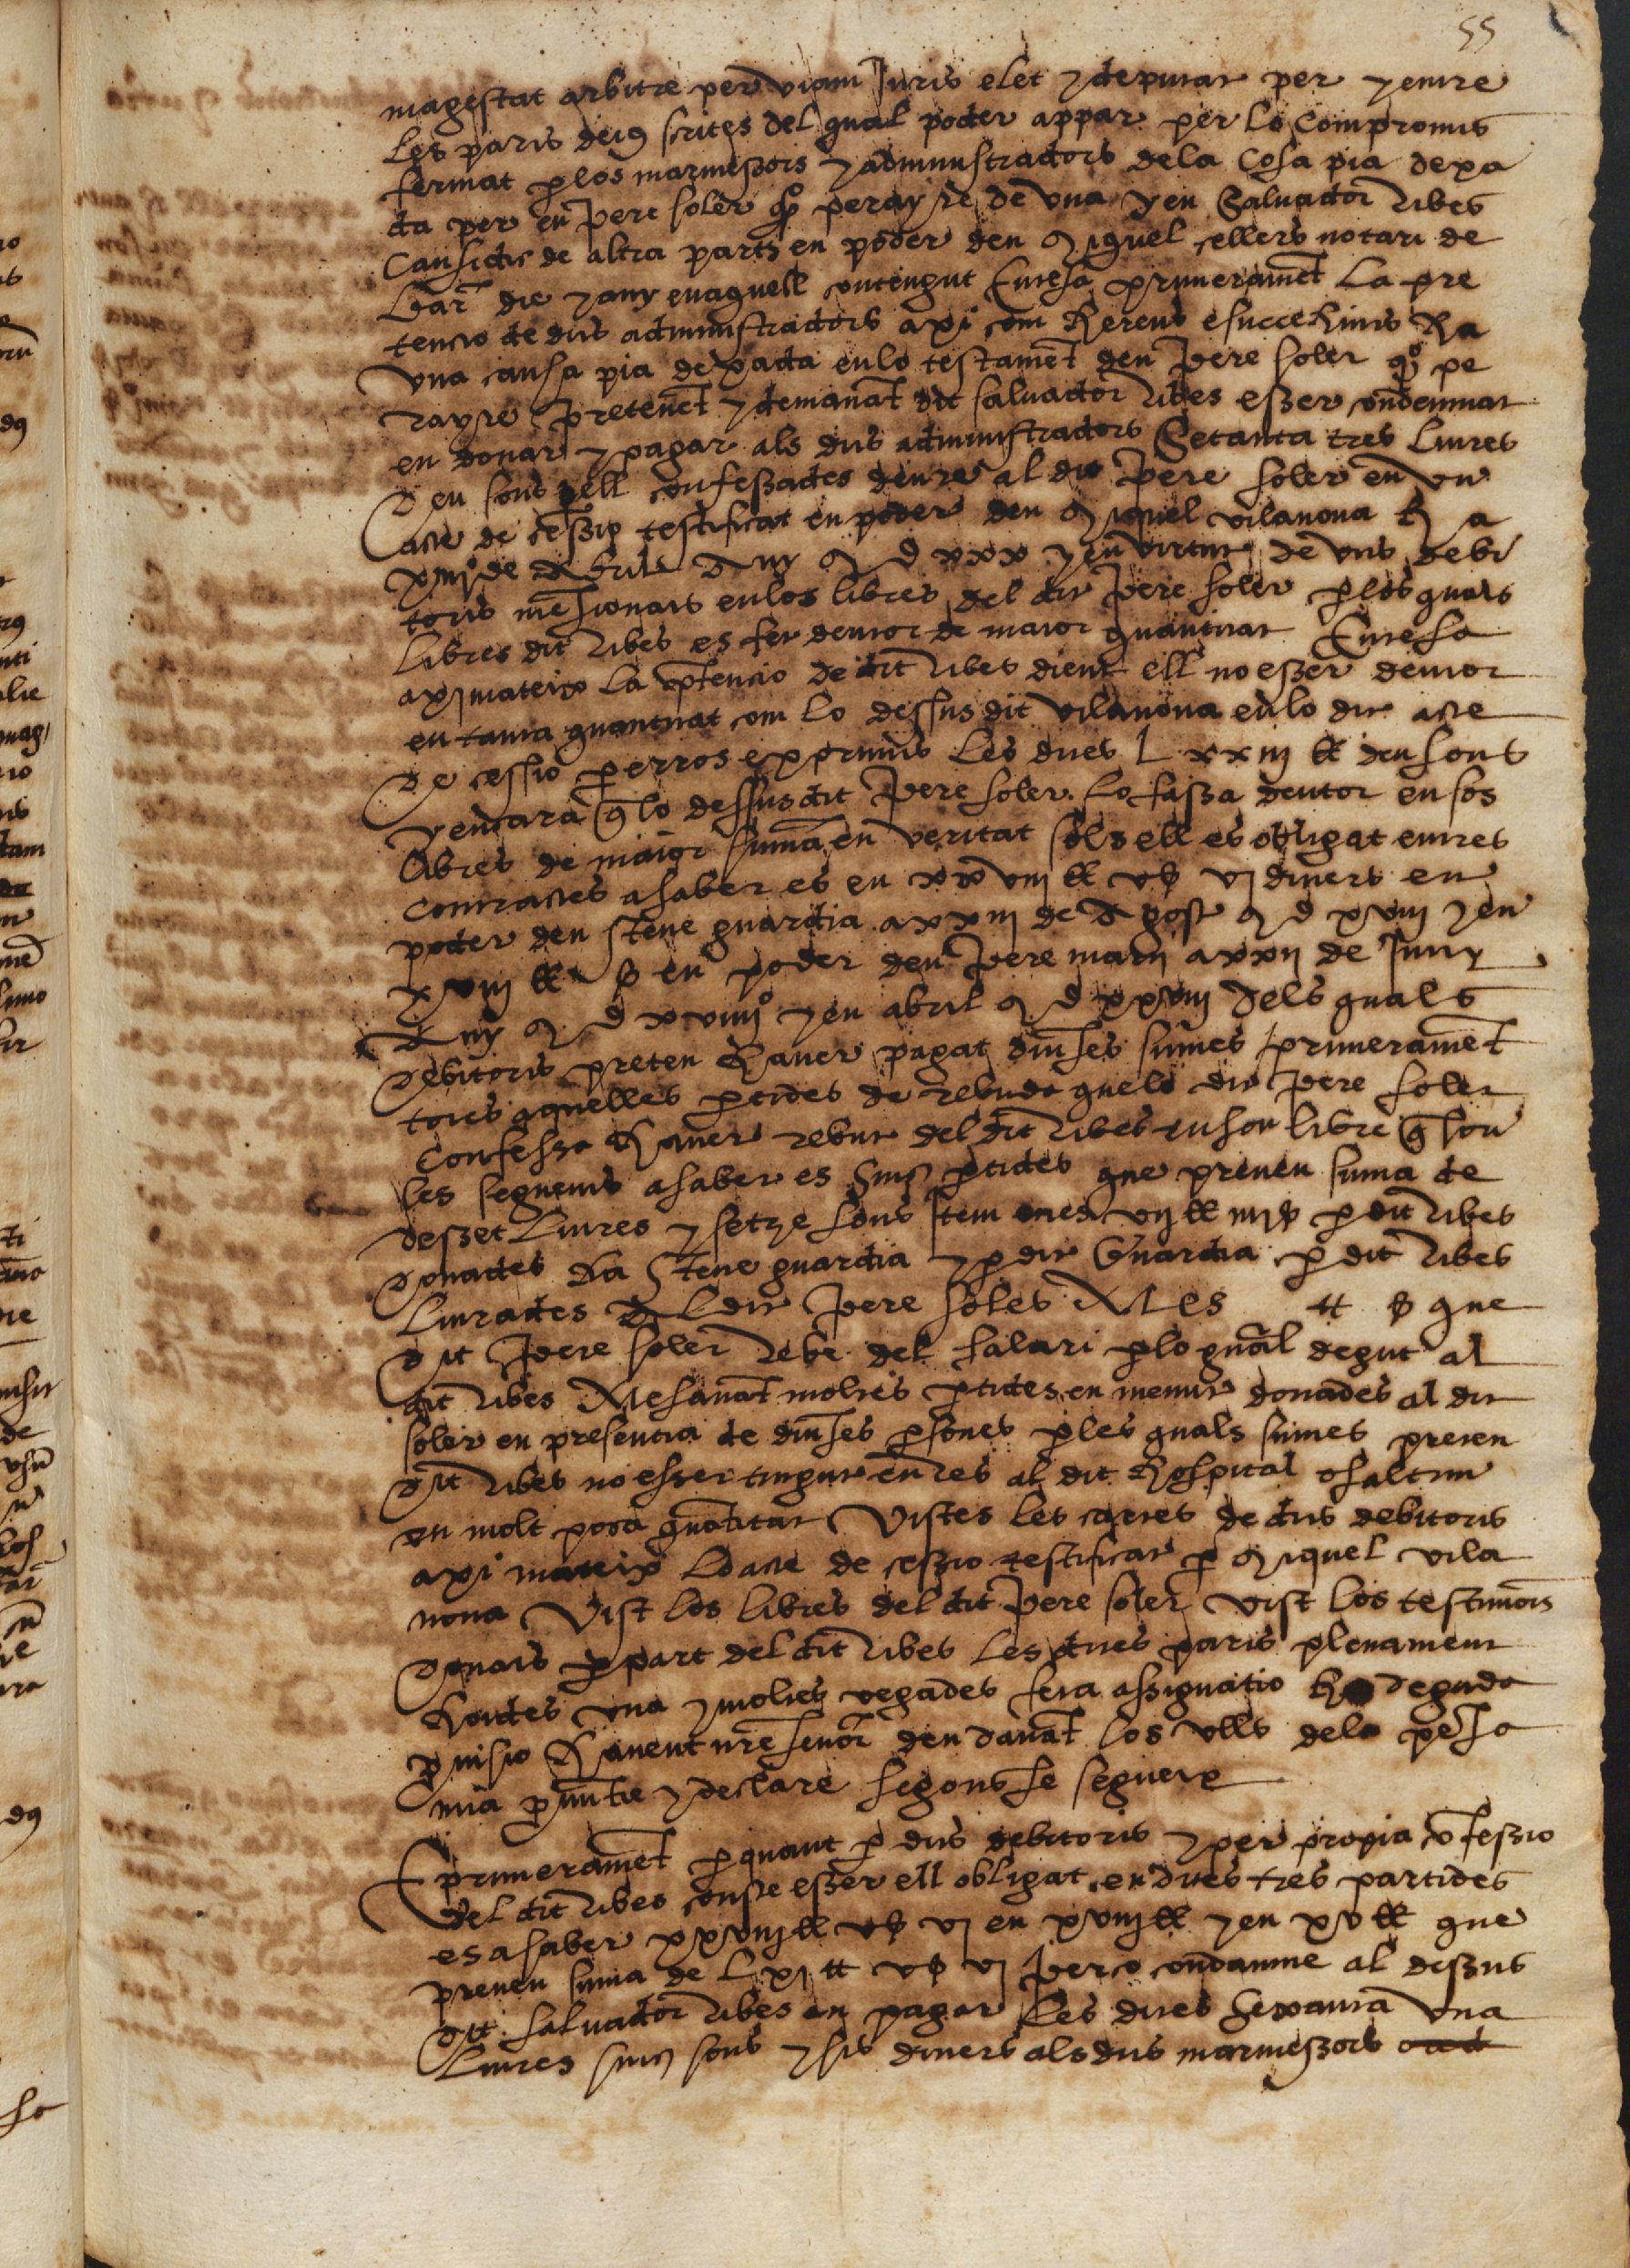 55
magestat arbitre per viam Juris elet y deputat per y entre
les parts deius scrites del qual poder appar per lo Compromis
fermat p los marmessors y administradors dela Cosa pia dexa
da per en pere soler qº perayre de una y en Salvador ribes
Causidic de altra parts en poder den Miquel cellers notari de
die y any en aquell contengut Entesa primeramēt la pre
tencio de dits administradors axi com hereus e succehints ha
una causa pia dexada en lo testamēt den pere soler qº pe
rayre pretenēt y demanāt dit salvador ribes esser cōdemnat
en donar y pagar als dits administradors Setanta tres liures
Deu sous p ell confessades deure al dit pere soler en un
acte de cessio testificat en poder den Miquel vilanova h a
xiiijº de Abril Any M D xxx y en virtut de uns debi
toris mēsionats en los libres del dit pere soler p los quals
libres dit ribes es fet deutor de maior quantitat Entesa
axi mateix la p̄tencio de dit ribes dient ell no esser deutor
en tanta quantitat com lo dessus dit vilanova en lo dit acte
De cessio p erros exprimis les dites L xxiij ll deu sous
y encara q̄ lo dessus dit pere soler lo fassa deutor en sos
libres de maior suma en veritat sols ell es obligat en tres
contractes a saber es en xxviij ll v ß vj diners en
poder den steve guardia a xxiij de Agost M D xviij y en
xviij ll ß en poder den pere marti a xxij de Juny
Any M D xviiijº y en abril M D xxviij dels quals
Debitoris preten haver pagat diūses sumes primeramēt
totes aquelles ptides de rebuda que lo dit pere soler
confessa haver rebut del dit ribes en son libre q̄ son
les seguents a saber es Sinq ptides que prenen suma de
desset liures y setze sous Item mes vij ll iiij ß p dit ribes
Donades ha steve guardia y p dit Guardia p dit ribes
liurades Al dit pere soler Mes ll ß que
Dit pere soler rebe del salari p lo qual degut al
dit ribes Mes avāt moltes ptides en menut donades al dit
soler en presentia de diūses psones p les quals sumes preten
Dit ribes no esser tingut en res al dit hospital o saltim
en molt poca quātitat Vistes les cartes de dits debitoris
axi mateix lo acte de cessio testificat p Miquel vila
nova Vist los libres del dit pere soler vist los testimōis
Donats p part del dit ribes les dites parts plenament
hoides una y moltes vegades feta assignatio ha deguda
p̄visio havent nr̄e senōr deu davāt los ulls dela pēsa
mia p̄nūtie y declare segons se segueix
E primeramēt p quant p dits debitoris y per propia cōfessio
del dit ribes conste esser ell obligat en dites tres partides
es a saber xxviij ll v ß vj en xviij ll y en xv ll que
prenen suma de L xj ll v ß vj perço condamne al dessus
dit salvador ribes en pagar les dites Sexanta una
liures sinq sous y sis diners als dits marmessors